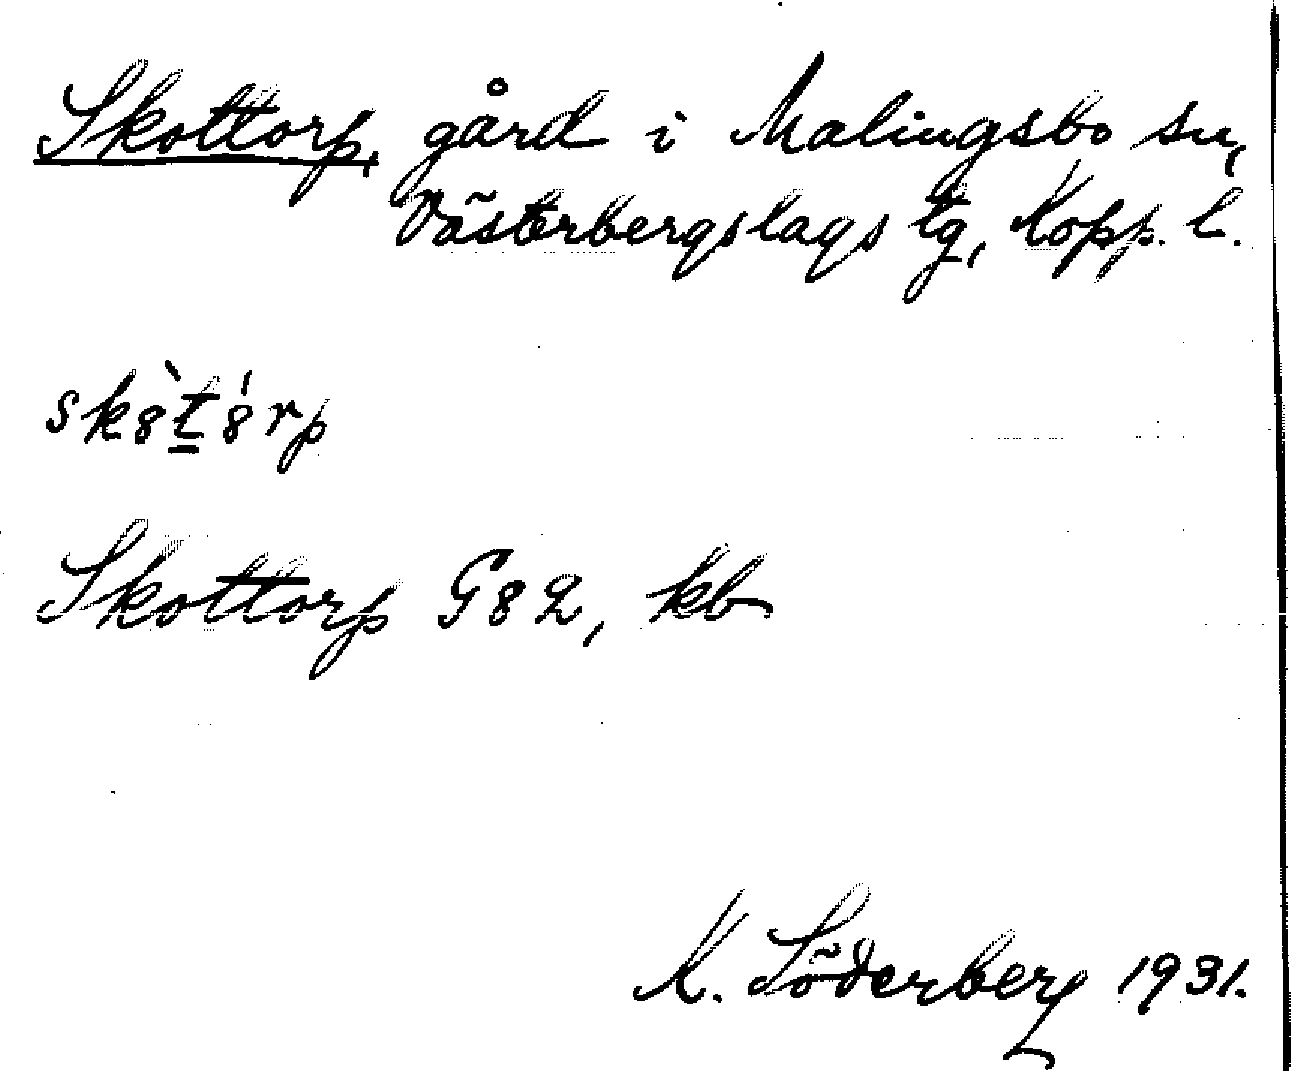 Skottorp, gård i Malingsbo sn,
Västerbergslags tg, Kopp. l.
sk8̀t̲8́rp
Skottorp G82, kb
K. Söderberg 1931.